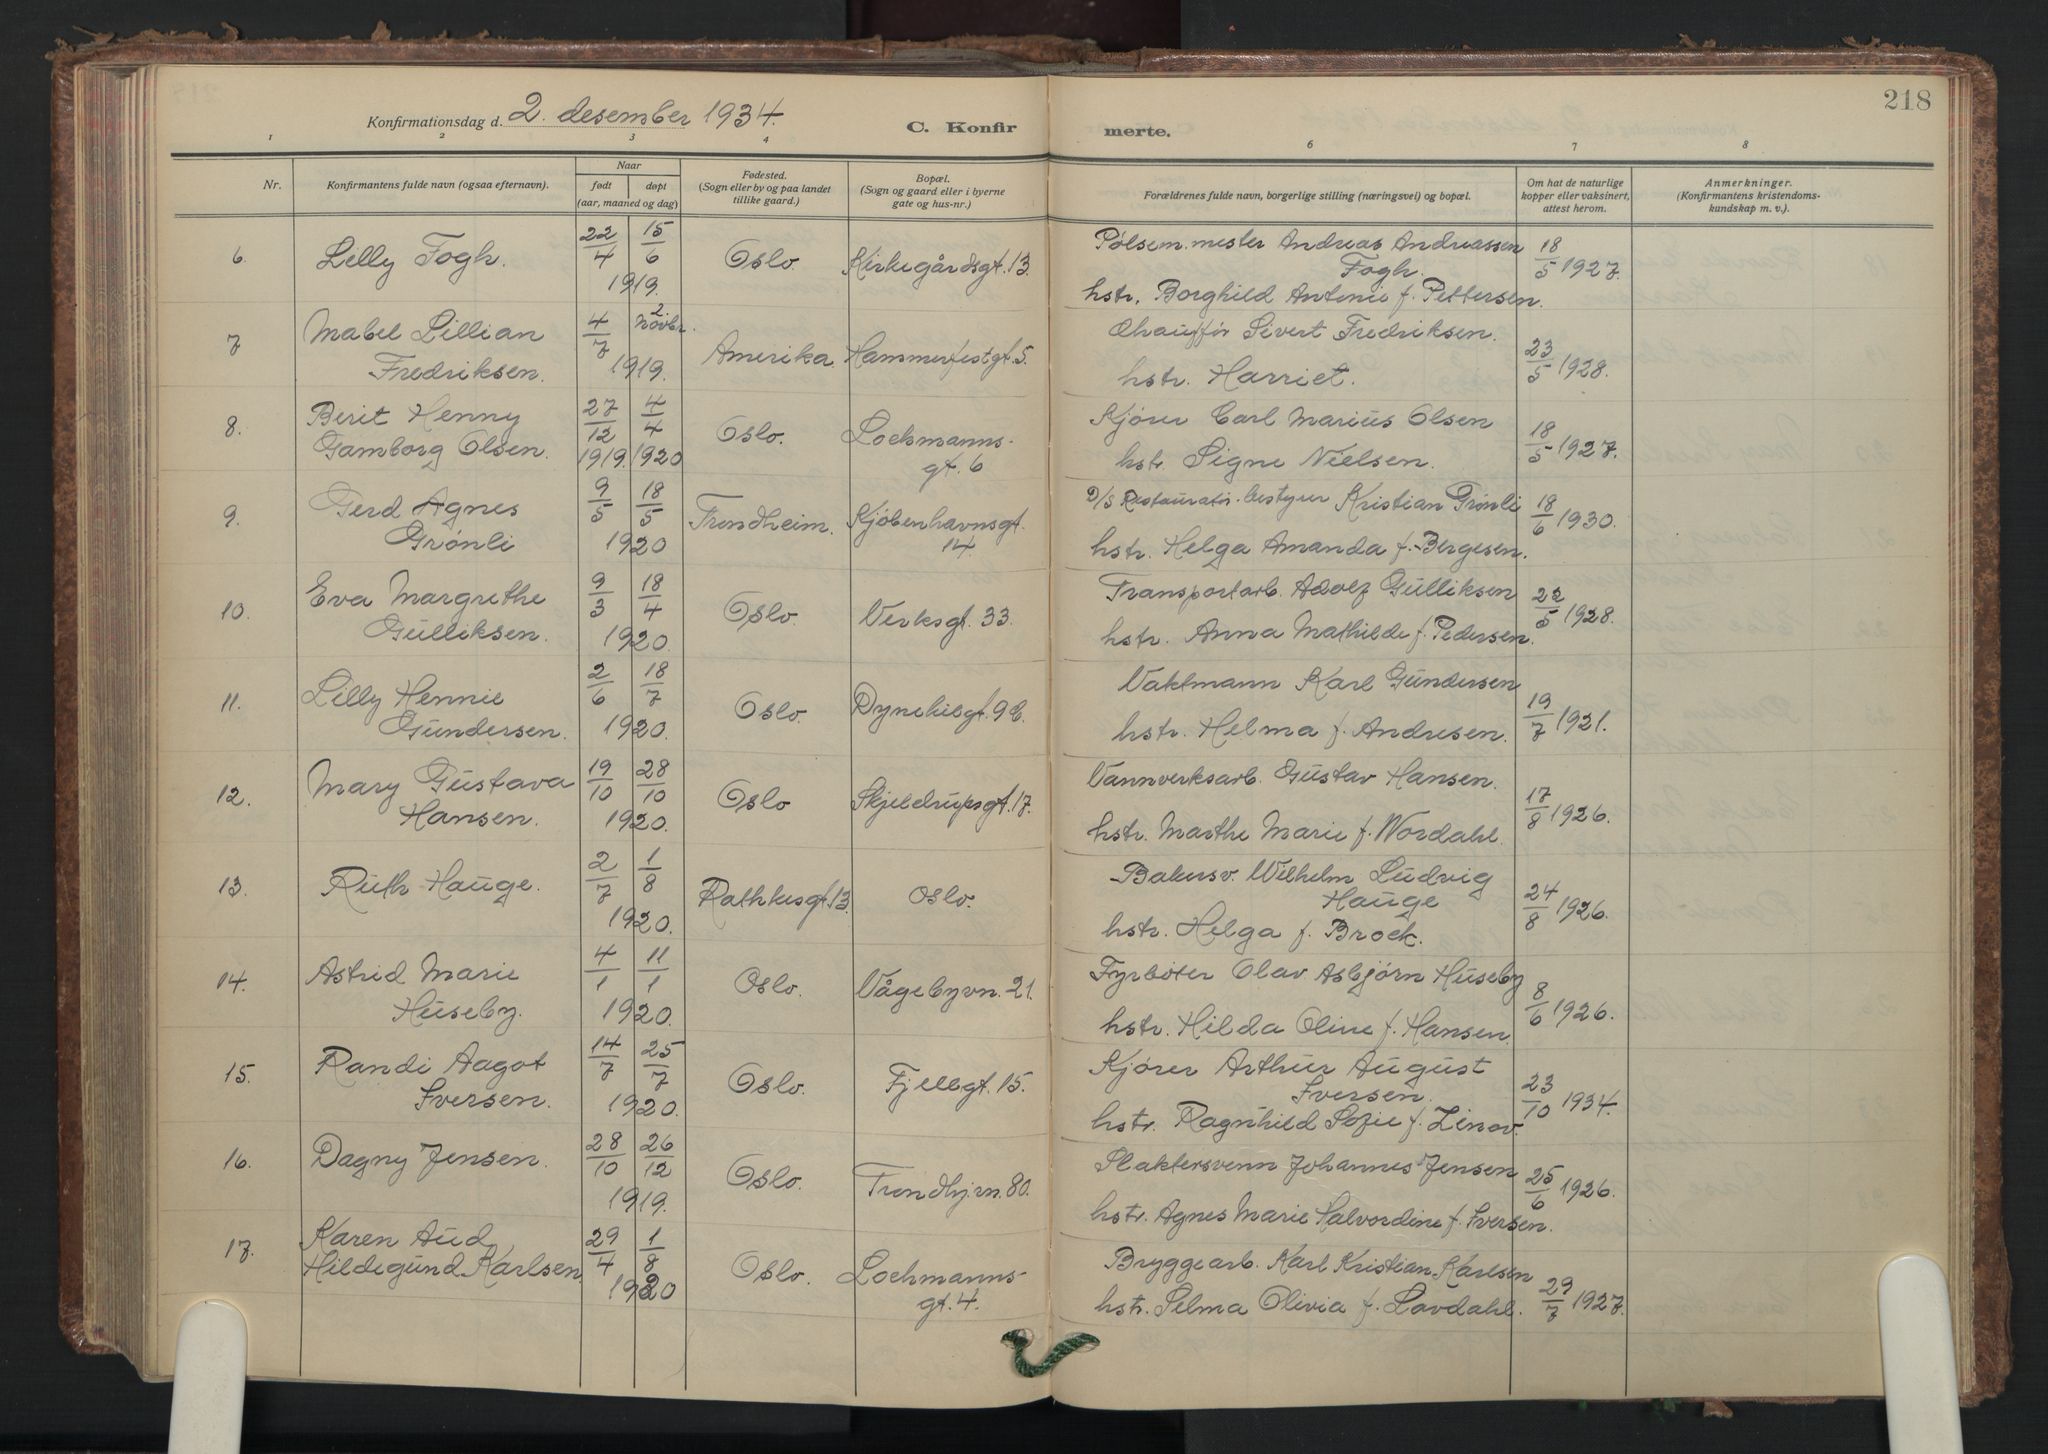 218
Konfirmationsdag d. 2. desember 1934.
C. Konfirmerte.
1 2 3 4 6 7 8
Nr.
Konfirmantens fulde navn (ogsaa efternavn).
Naar
født døpt
(aar, maaned og dag)
Fødested.
(Sogn eller by og paa landet
tillike gaard.)
Bopæl.
(Sogn og gaard eller i byerne
gate og hus-nr.)
Forældrenes fulde navn, borgerlige stilling (næringsvei) og bopæl.
Om hat de naturlige
kopper eller vaksinert,
attest herom.
Anmerkninger.
(Konfirmantens kristendoms-
kundskap m. v.).
6. Lilly Fogh. 22/4 15/6 1919. Oslo. Kirkegårdsgt. 13. Pølsem.mester Andreas Andreassen
Fogh.
hstr. Borghild Antonie f. Pettersen. 18/5 1927.
7 Mabel Lillian
Fredriksen. 4/7 2 novbr. 1919. Amerika. Hammerfestgt. 5. Chauffør Sivert Fredriksen.
hstr. Harriet. 23/5 1928.
8. Berit Henny
Gamborg Olsen. 27/12 1919. 4/4 1920 Oslo. Lochmanns-
gt. 6 Kjører Carl Marius Olsen
hstr. Signe Nielsen. 18/5 1927.
9. Gerd Agnes
Grønli 9/5 18/5 1920 Trondheim. Kjøbenhavnsgt.
14. D/S Restauratør-bestyrer Kristian Grønli
hstr. Helga Amanda f. Bergesen. 18/6 1930.
10. Eva Margrethe
Gulliksen. 9/3 18/4 1920. Oslo. Verksgt. 33. Transportarb. Adolf Gulliksen
hstr. Anna Mathilde f. Pedersen. 22/5 1928.
11. Lilly Hennie
Gundersen. 2/6 18/7 1920. Oslo. Dynekilgt. 9 b. Vaktmann Karl Gundersen
hstr. Helma f. Andresen. 19/7 1921.
12. Mary Gustava
Hansen. 19/10 28/10 1920. Oslo Skjeldrupsgt. 17. Vannverksarb. Gustav Hansen.
hstr. Marthe Marie f. Nordahl. 17/8 1926.
13. Ruth Hauge. 2/7 1/8 1920. Rathkesgt. 13. Oslo. Bakersv. Wilhelm Ludvig
Hauge
hstr. Helga f. Brock. 24/8 1926.
14. Astrid Marie
Huseby. 4/1 11/1 1920. Oslo. Vågebyvn. 21. Fyrbøter Olav Asbjørn Huseby
hstr. Hilda Oline f. Hansen. 8/6 1926.
15. Randi Aagot
Iversen. 14/7 25/7 1920. Oslo. Fjellgt. 15. Kjører Arthur August
Iversen.
hstr. Ragnhild Sofie f. Linov. 23/10 1934.
16. Dagny Jensen. 28/10 26/12 1919. Oslo. Trondhj.vn. 80. Slaktersvenn Johannes Jensen
hstr. Agnes Marie Halvordine f. Iversen. 25/6 1926.
17. Karen Aud
Hildegund Karlsen 29/4 1/8 1920 Oslo. Lochmanns-
gt. 4. Bryggearb. Karl Kristian Karlsen
hstr. Selma Olivia f. Lovdahl. 29/7 1927.